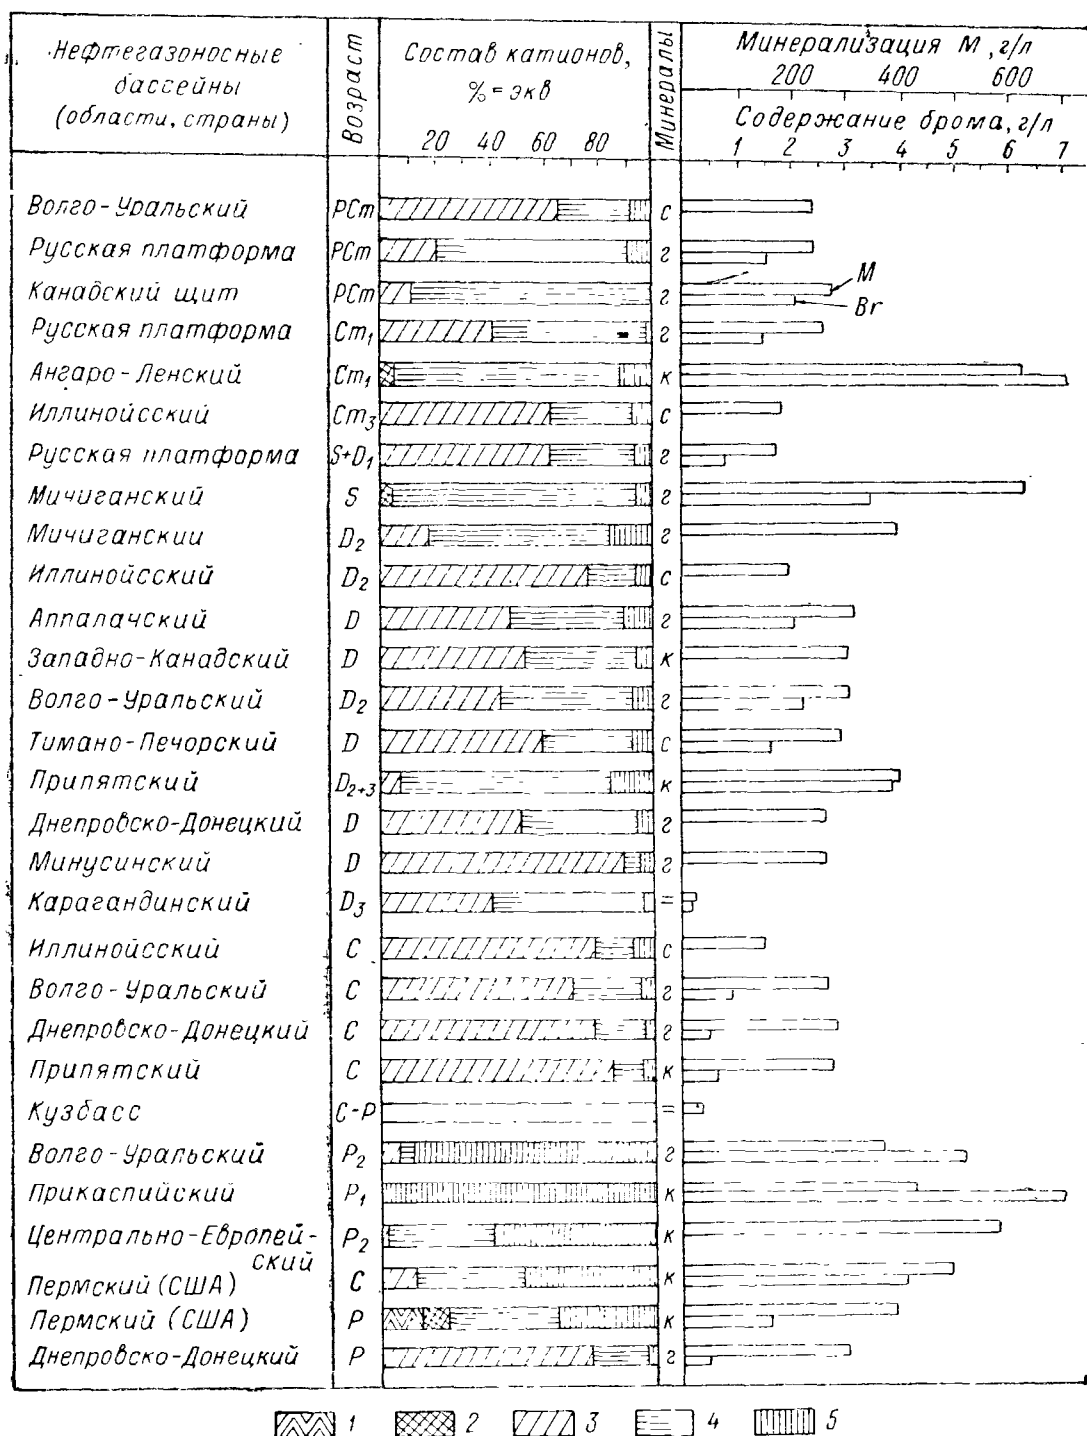 Нефтегазоносные бассейны (области, страны)
Возраст
Состав катионов, % = экв
20 40 60 80
Минералы
Минерализация М, г/л
200 400 600
Содержание брома, г/л
1 2 3 4 5 6 7
Волго-Уральский PCm с
Русская платформа PCm г
Канадский щит PCm г
M
Br
Русская платформа Cm₁ г
Ангаро-Ленский Cm₁ к
Иллинойсский Cm₃ с
Русская платформа S+D₁ г
Мичиганский S г
Мичиганский D₂ г
Иллинойсский D₂ с
Аппалачский D г
Западно-Канадский D к
Волго-Уральский D₂ г
Тимано-Печорский D с
Припятский D₂₊₃ к
Днепровско-Донецкий D г
Минусинский D г
Карагандинский D₃ =
Иллинойсский C с
Волго-Уральский C г
Днепровско-Донецкий C г
Припятский C к
Кузбасс C-P =
Волго-Уральский P₂ г
Прикаспийский P₁ к
Центрально-Европей-
ский P₂ к
Пермский (США) C к
Пермский (США) P к
Днепровско-Донецкий P г
1 2 3 4 5